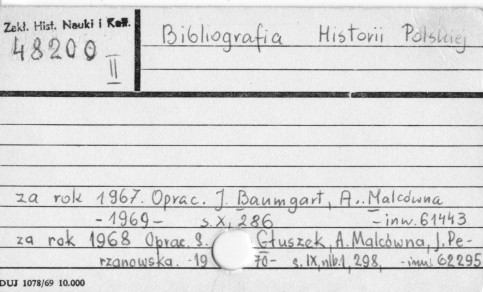 Zakł. Hist. Nauki i
48200
II
Bibliografia Historii Polskiej
za rok 1967. Oprac. J. Baumgart, A. Malcówna
- 1969 - s. X, 286 - inw. 61443
za rok 1968 Oprac. S. Głuszek, A. Malcówna, J. Pe-
rzanowska. - 1970 - s. IX, nlb. 1, 298, - inw. 62295
DUJ 1078/69 10.000